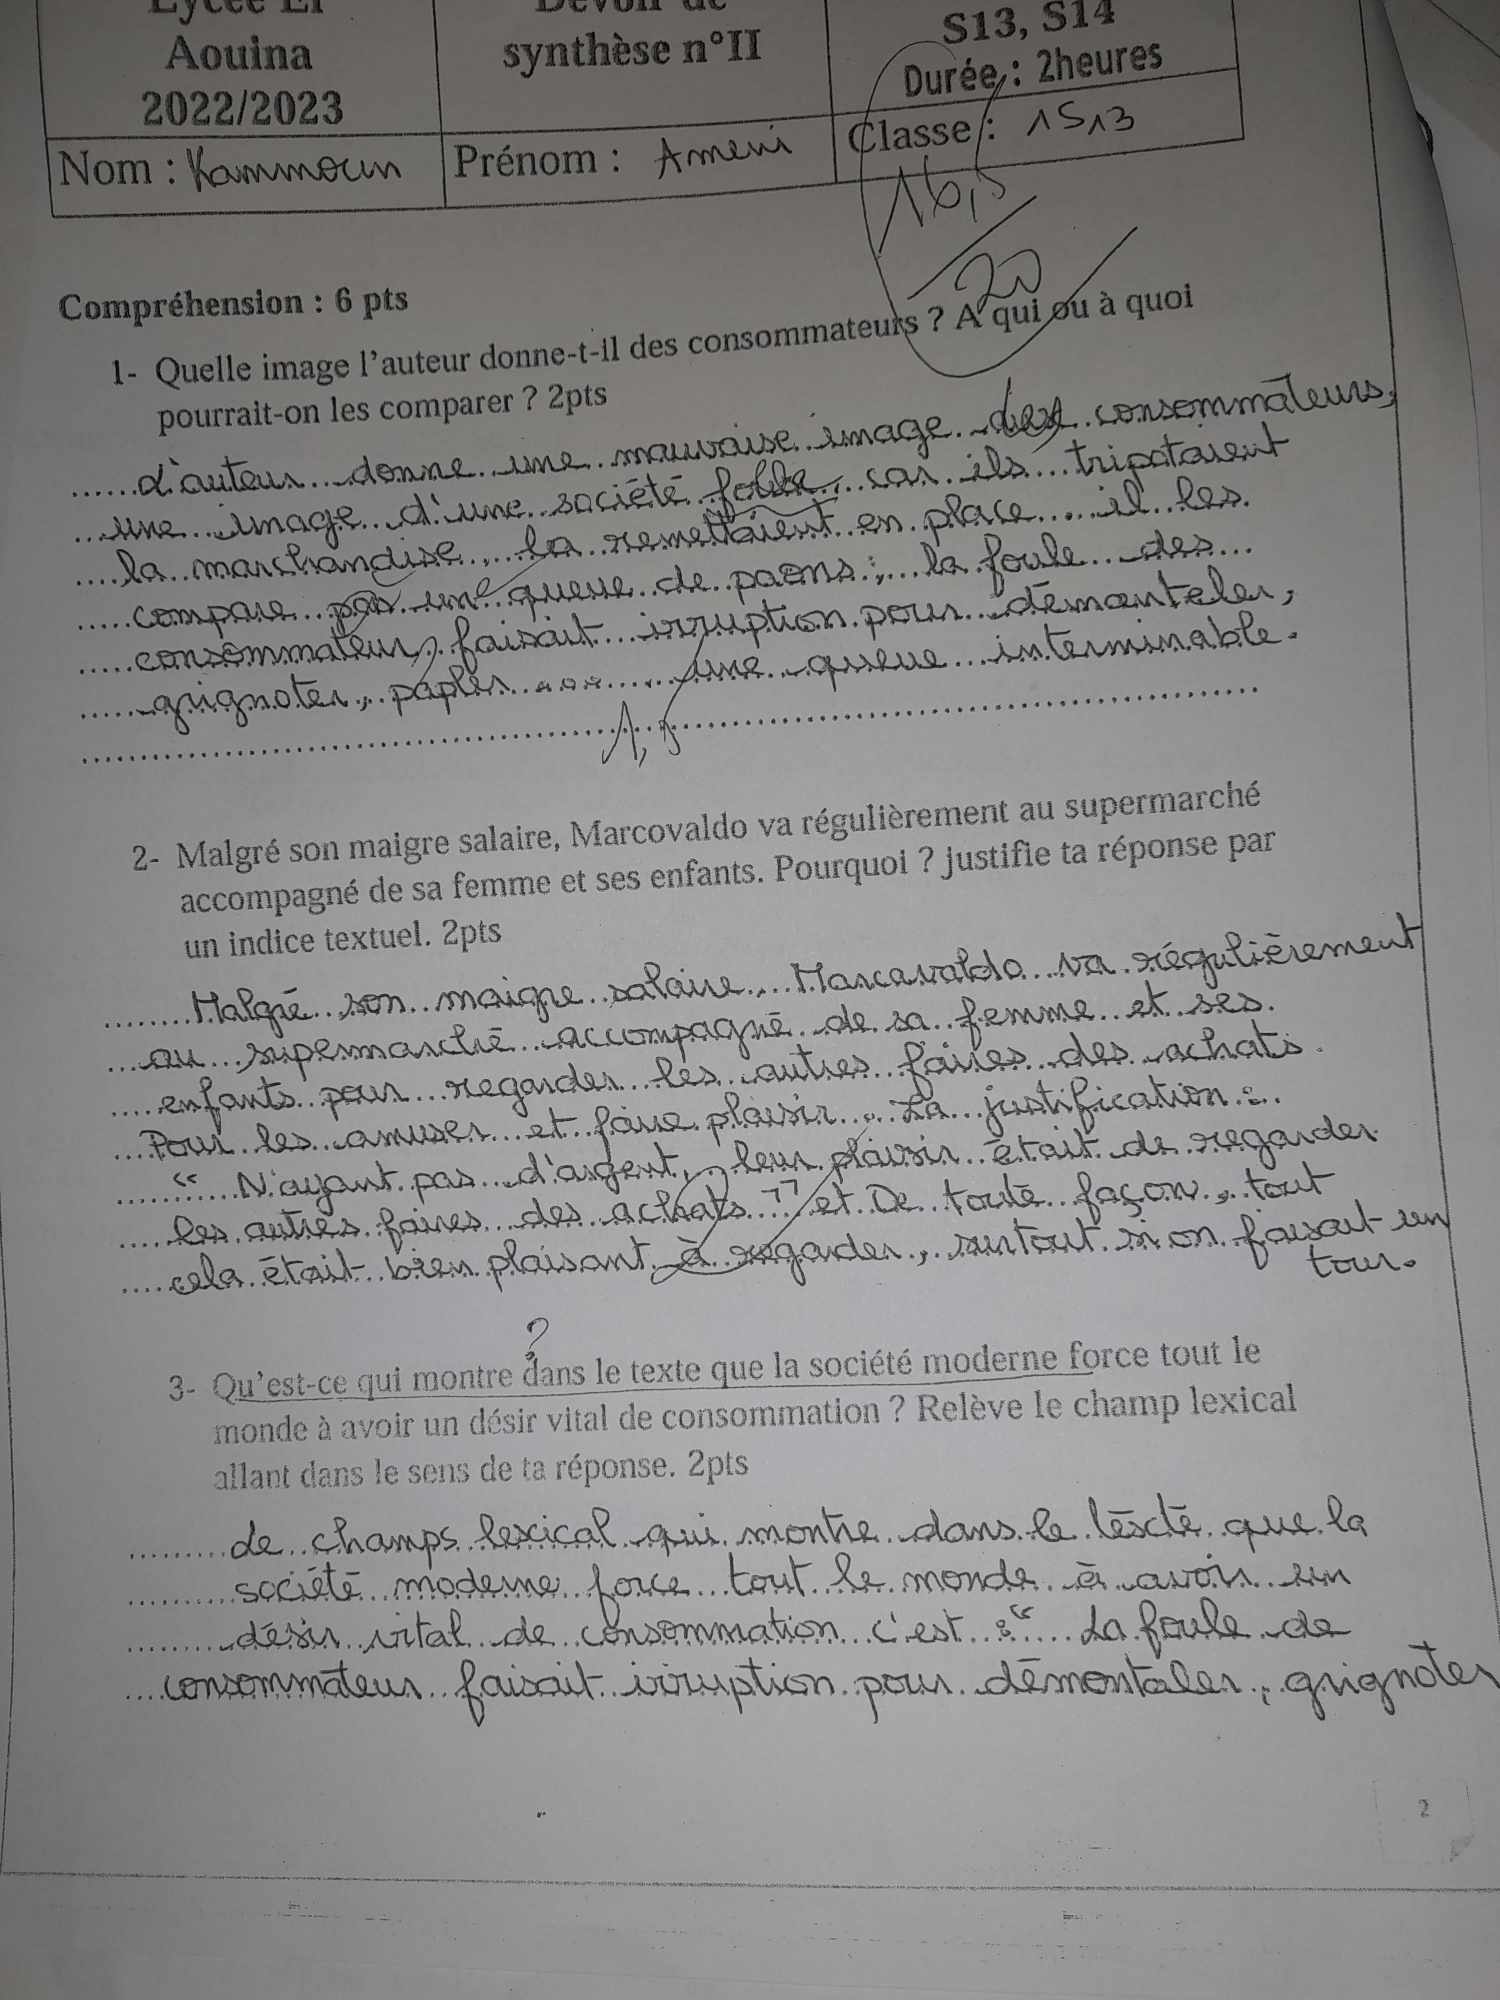 Lycée El
Aouina
2022/2023
Devoir de
synthèse n°II
S13, S14
Durée : 2heures
Nom : Kammoun
Prénom : Ameni
Classe : 1S13
16,5
20
Compréhension : 6 pts
1- Quelle image l'auteur donne-t-il des consommateurs ? A qui ou à quoi
pourrait-on les comparer ? 2pts
L'auteur donne une mauvaise image des consommateurs,
une image d'une société folle car ils tripotaient
la marchandise, la remettaient en place... il les
compare par une queue de paons :, la foule des
consommateur, faisait irruption pour démanteler,
grignoter, palper ... une queue interminable.
1,5
2- Malgré son maigre salaire, Marcovaldo va régulièrement au supermarché
accompagné de sa femme et ses enfants. Pourquoi ? justifie ta réponse par
un indice textuel. 2pts
Malgré son maigre salaire, Marcavaldo va régulièrement
au supermarché accompagné de sa femme et ses
enfants pour regarder les autres faires des achats.
Pour les amuser et faire plaisir. La justification :
" N'ayant pas d'argent, leur plaisir était de regarder
les autres faires des achats " et De toute façon, tout
cela était bien plaisant à regarder, surtout si on faisait un
tour.
2
?
3- Qu'est-ce qui montre dans le texte que la société moderne force tout le
monde à avoir un désir vital de consommation ? Relève le champ lexical
allant dans le sens de ta réponse. 2pts
Le champs lexical qui montre dans le texte que la
société moderne force tout le monde à avoir un
désir vital de consommation c'est :" La foule de
consommateur faisait irruption pour démontaler, grignoter
2